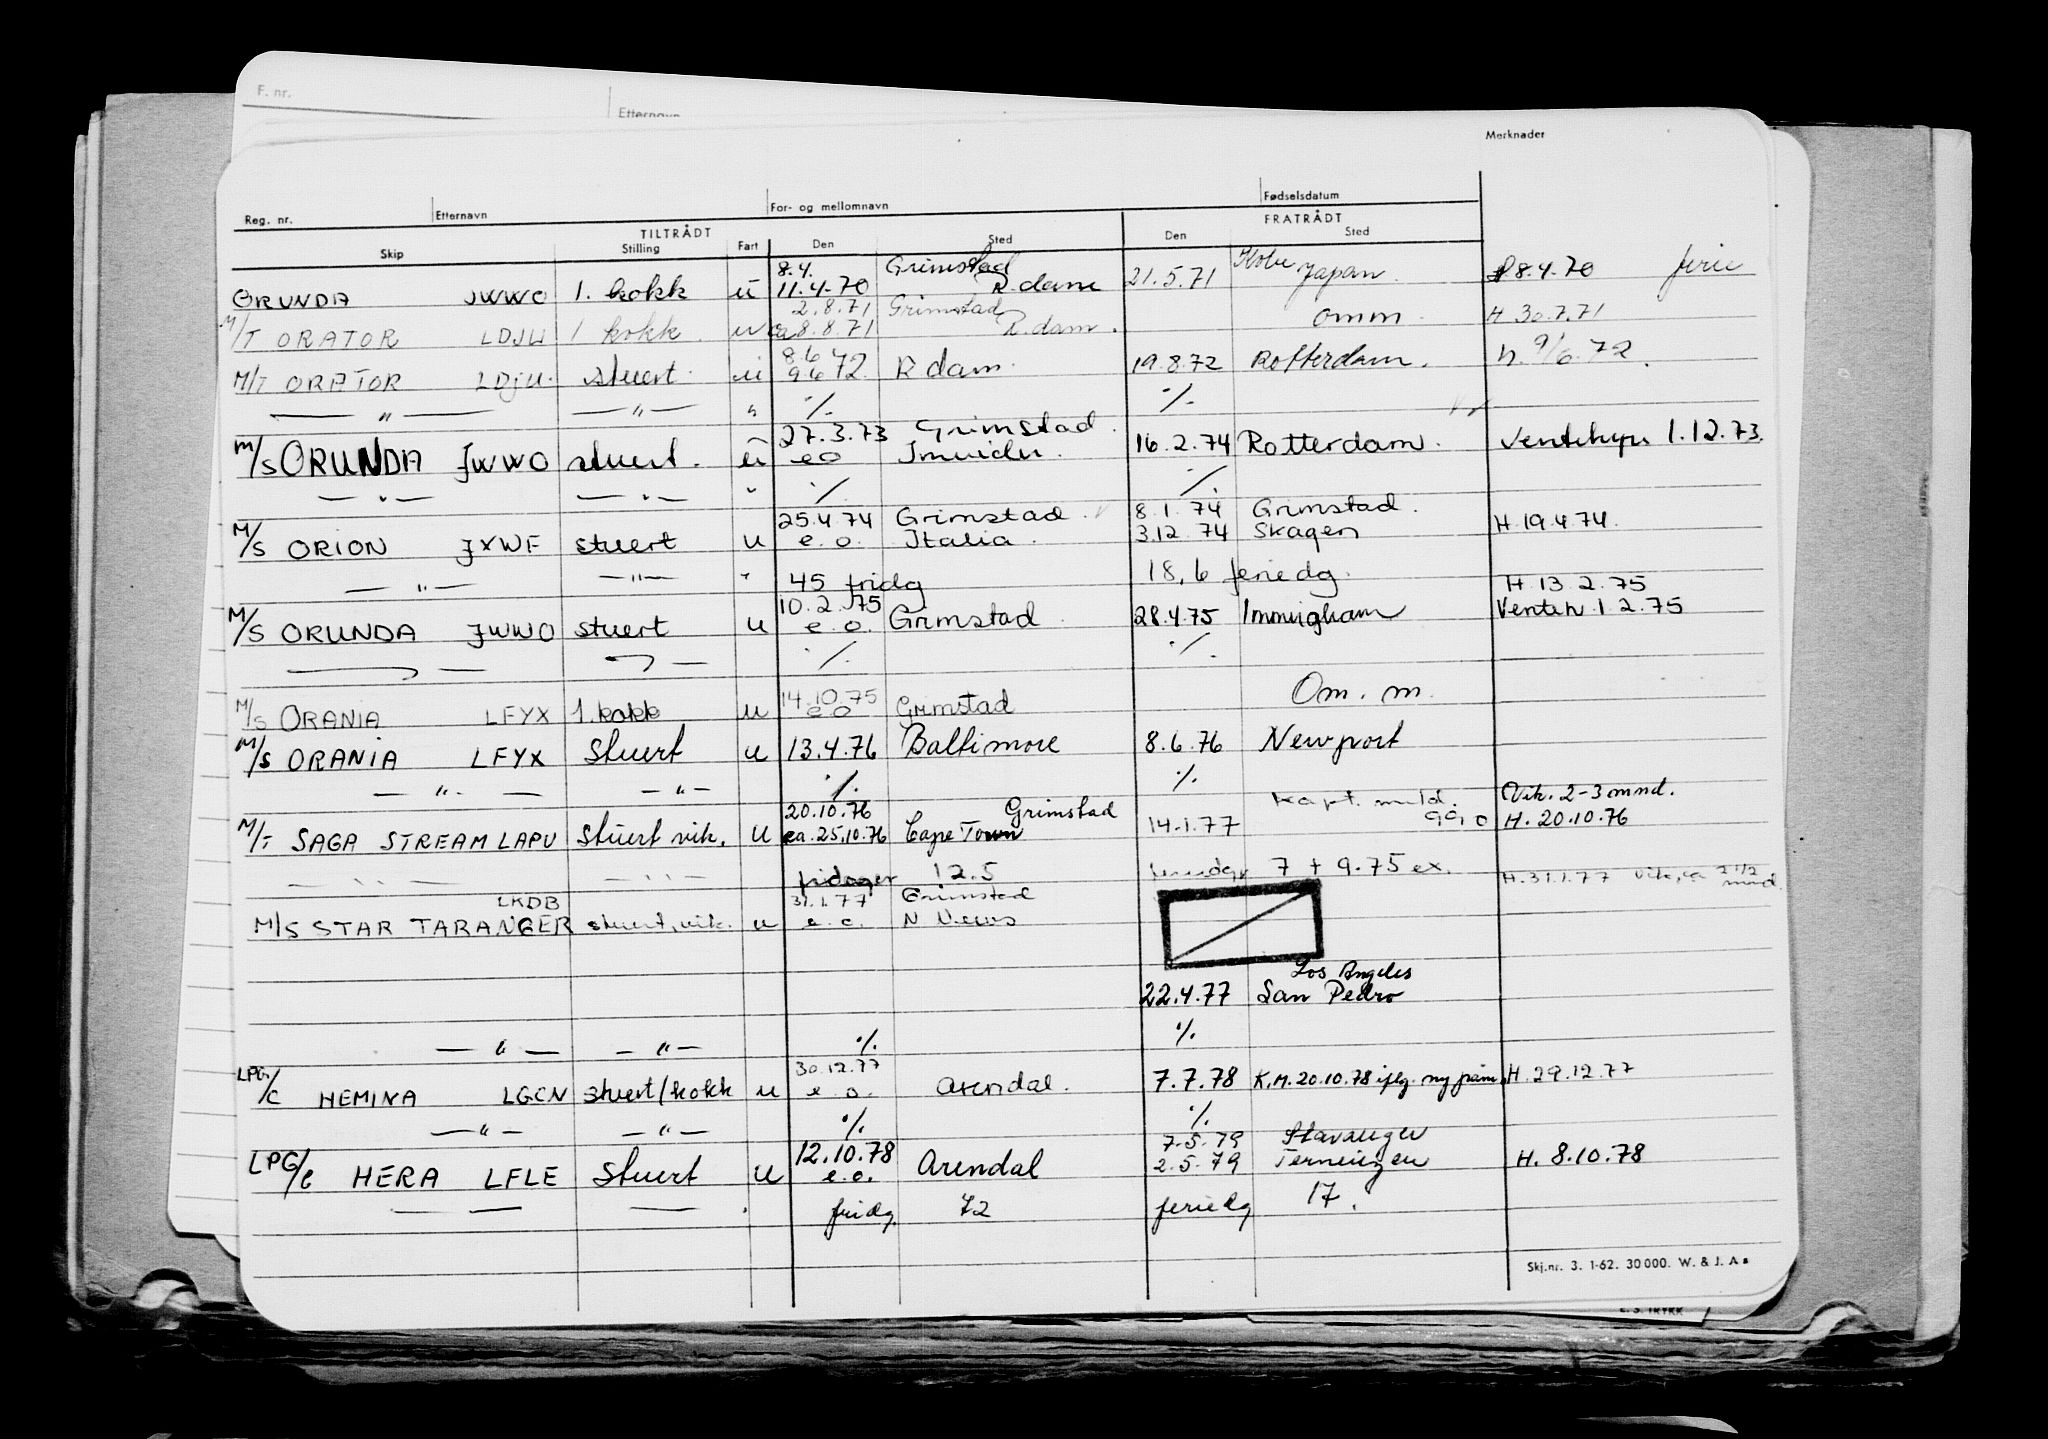 F. nr.
Etternavn
Merknader
Reg. nr. Etternavn For- og mellomnavn Fødselsdatum
TILTRÅDT FRATRÅDT
Skip Stilling Fart Den Sted Den Sted
8.4. Grimstad Kobe
ORUNDA JWWO 1. kokk u 11.4.70 R.dam 21.5.71 Japan 8.4.70 ferie
2.8.71 Grimstad
M/T ORATOR LDJU 1 kokk u ca 8.8.71 R.dam. omm. H 30.7.71
8.6
M/T ORATOR LDJU. stuert. u 9.6 72 R dam. 19.8.72 Rotterdam. h. 9/6.72.
— " — — " — " ·/. ·/.
27.3.73 Grimstad.
M/S ORUNDA JWWO stuert. u e o 16.2.74 Rotterdam. 1.12.73.
— " — — " — " ·/. ·/.
25.4.74 Grimstad. 8.1.74 Grimstad.
M/S ORION JXWF stuert u e. o. Italia. 3.12.74 Skagen H. 19.4.74.
— " — — " — " 45 fridg 18,6 feriedg. H. 13.2.75
10.2.75
M/S ORUNDA JWWO stuert u e. o. Grimstad 28.4.75 Immingham 1.2.75
·/. ·/.
14.10.75
M/S ORANIA LFYX 1. kokk u e o Grimstad Om. m.
M/S ORANIA LFYX Stuert u 13.4.76 Baltimore 8.6.76 Newport
— " — — " — ·/. ·/. Vik. 2-3 mnd.
20.10.76 Grimstad kapt. meld.
M/T SAGA STREAM LAPU Stuert vik. u ca. 25.10.76 Cape Town 14.1.77 H. 20.10.76
— " — — " — fridager 12.5 7 + 9.75 ex. H. 31.1.77 vik, ca 2 1/2 mnd.
LKDB 31.1.77 Grimstad
M/S STAR TARANGER stuert, vik. u e. o. N News
Los Angeles
22.4.77 San Pedro
— " — — " — ·/. ·/.
30.12.77
LPG/C HEMINA LGCN stuert/kokk u e. o. Arendal. 7.7.78 K.M. 20.10.78 iflg. ny H. 29.12.77
— " — — " — ·/. ·/.
12.10.78 7.5.79 Stavanger
LPG/C HERA LFLE Stuert u e.o. Arendal 2.5.79 Terneuzen H. 8.10.78
— — — fridg. 72 feriedg 17.
Skj.nr. 3. 1-62. 30 000. W. & J. A s